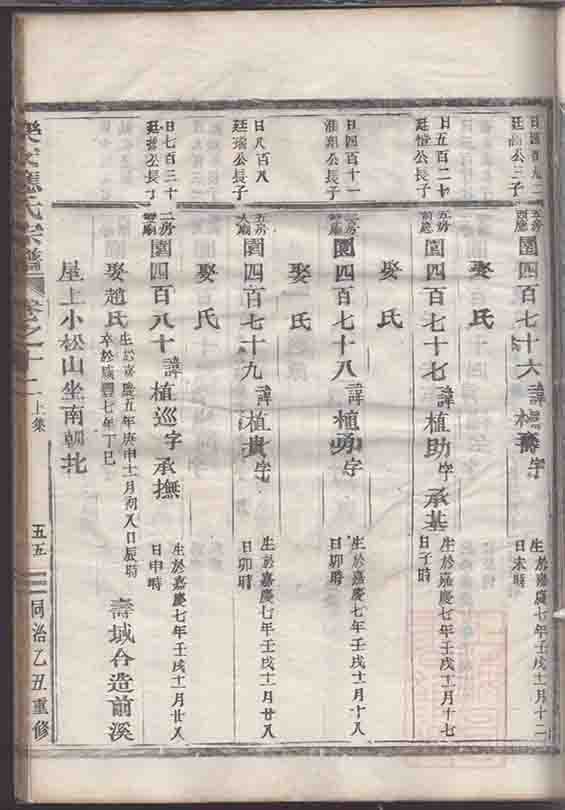 日四百九二
廷高公三子
園四百七十六 諱植壽 字
生於嘉慶七年壬戌十一月十二
日未時
娶 氏
日五百二十
廷愷公長子
園四百七十七 諱植助 字承基
生於嘉慶七年壬戌十一月十七
日子時
娶 氏
日四百十一
公長子
園四百七十八 諱植 字
生於嘉慶七年壬戌十一月十八
日卯時
娶 氏
日八百八
廷瑞公長子
園四百七十九 諱植貴 字
生於嘉慶七年壬戌十一月廿八
日卯時
娶 氏
日七百三十
公長子
二房
園四百八十 諱植巡 字承撫
生於嘉慶七年壬戌十二月廿八
日申時
娶趙氏
生於嘉慶五年庚申十二月初八日辰時
卒於咸豐七年丁巳
壽域合造前溪
屋上小松山坐南朝北
應氏宗譜 卷之十二 上集 五五 同治乙丑重修